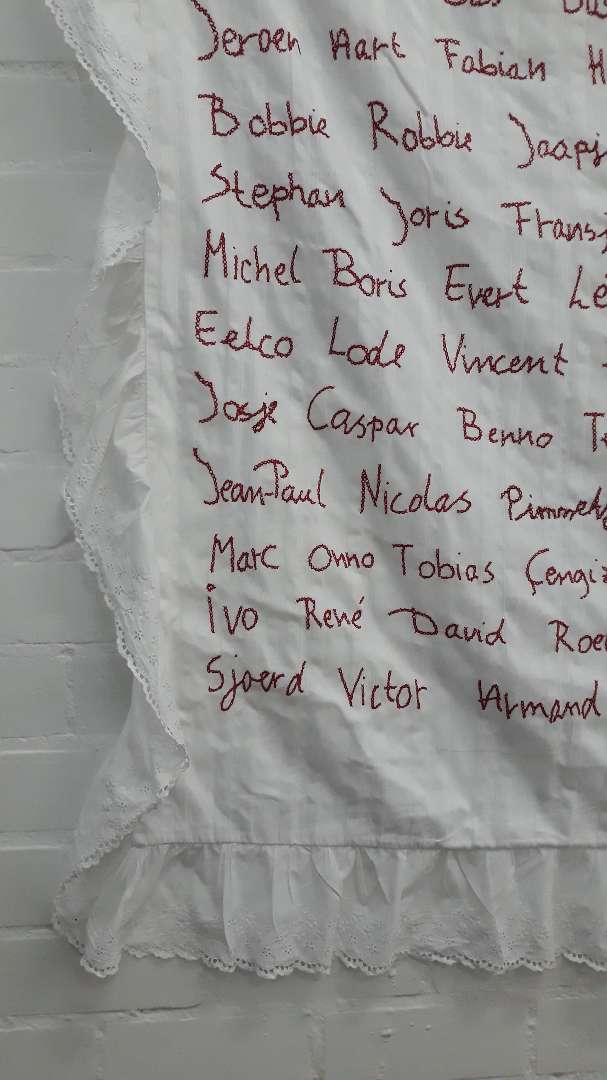 Jeroen Aart Fabian H
Bobbie Robbie Jaapj
Stephan Joris Frans
Michel Boris Evert Lé
Eelco Lode Vincent
Josje Caspar Benno Te
Jean-Paul Nicolas Pimmeh
Marc Onno Tobias Çengiz
Ivo René David Roe
Sjoerd Victor Armand